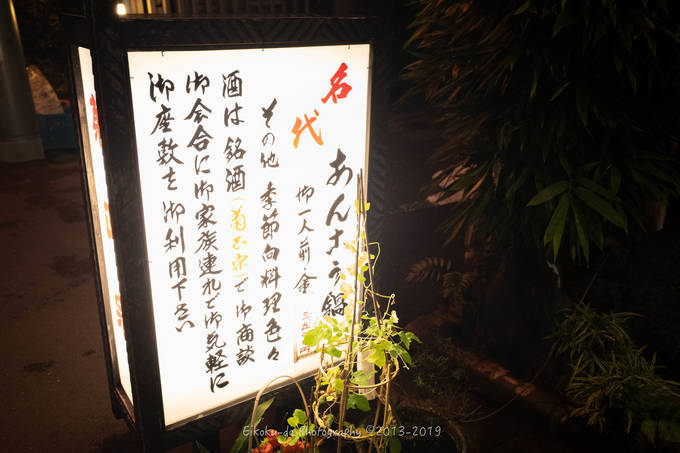 名代
あんこう鍋
御一人前・金
円
その他 季節向料理色々
酒は 銘酒(菊正宗)で御商談
御会合に御家族連れで御気軽に
御座敷を御利用下さい
Eikoku-do Photography ©2013-2019